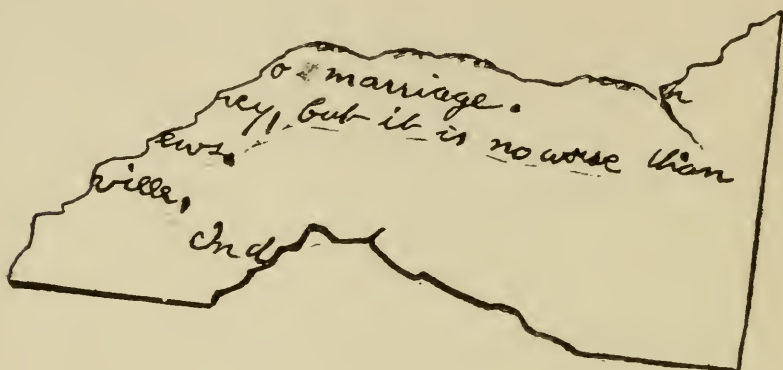 o marriage.
n
ney, but it is no worse than
ews.
ville,
Ind